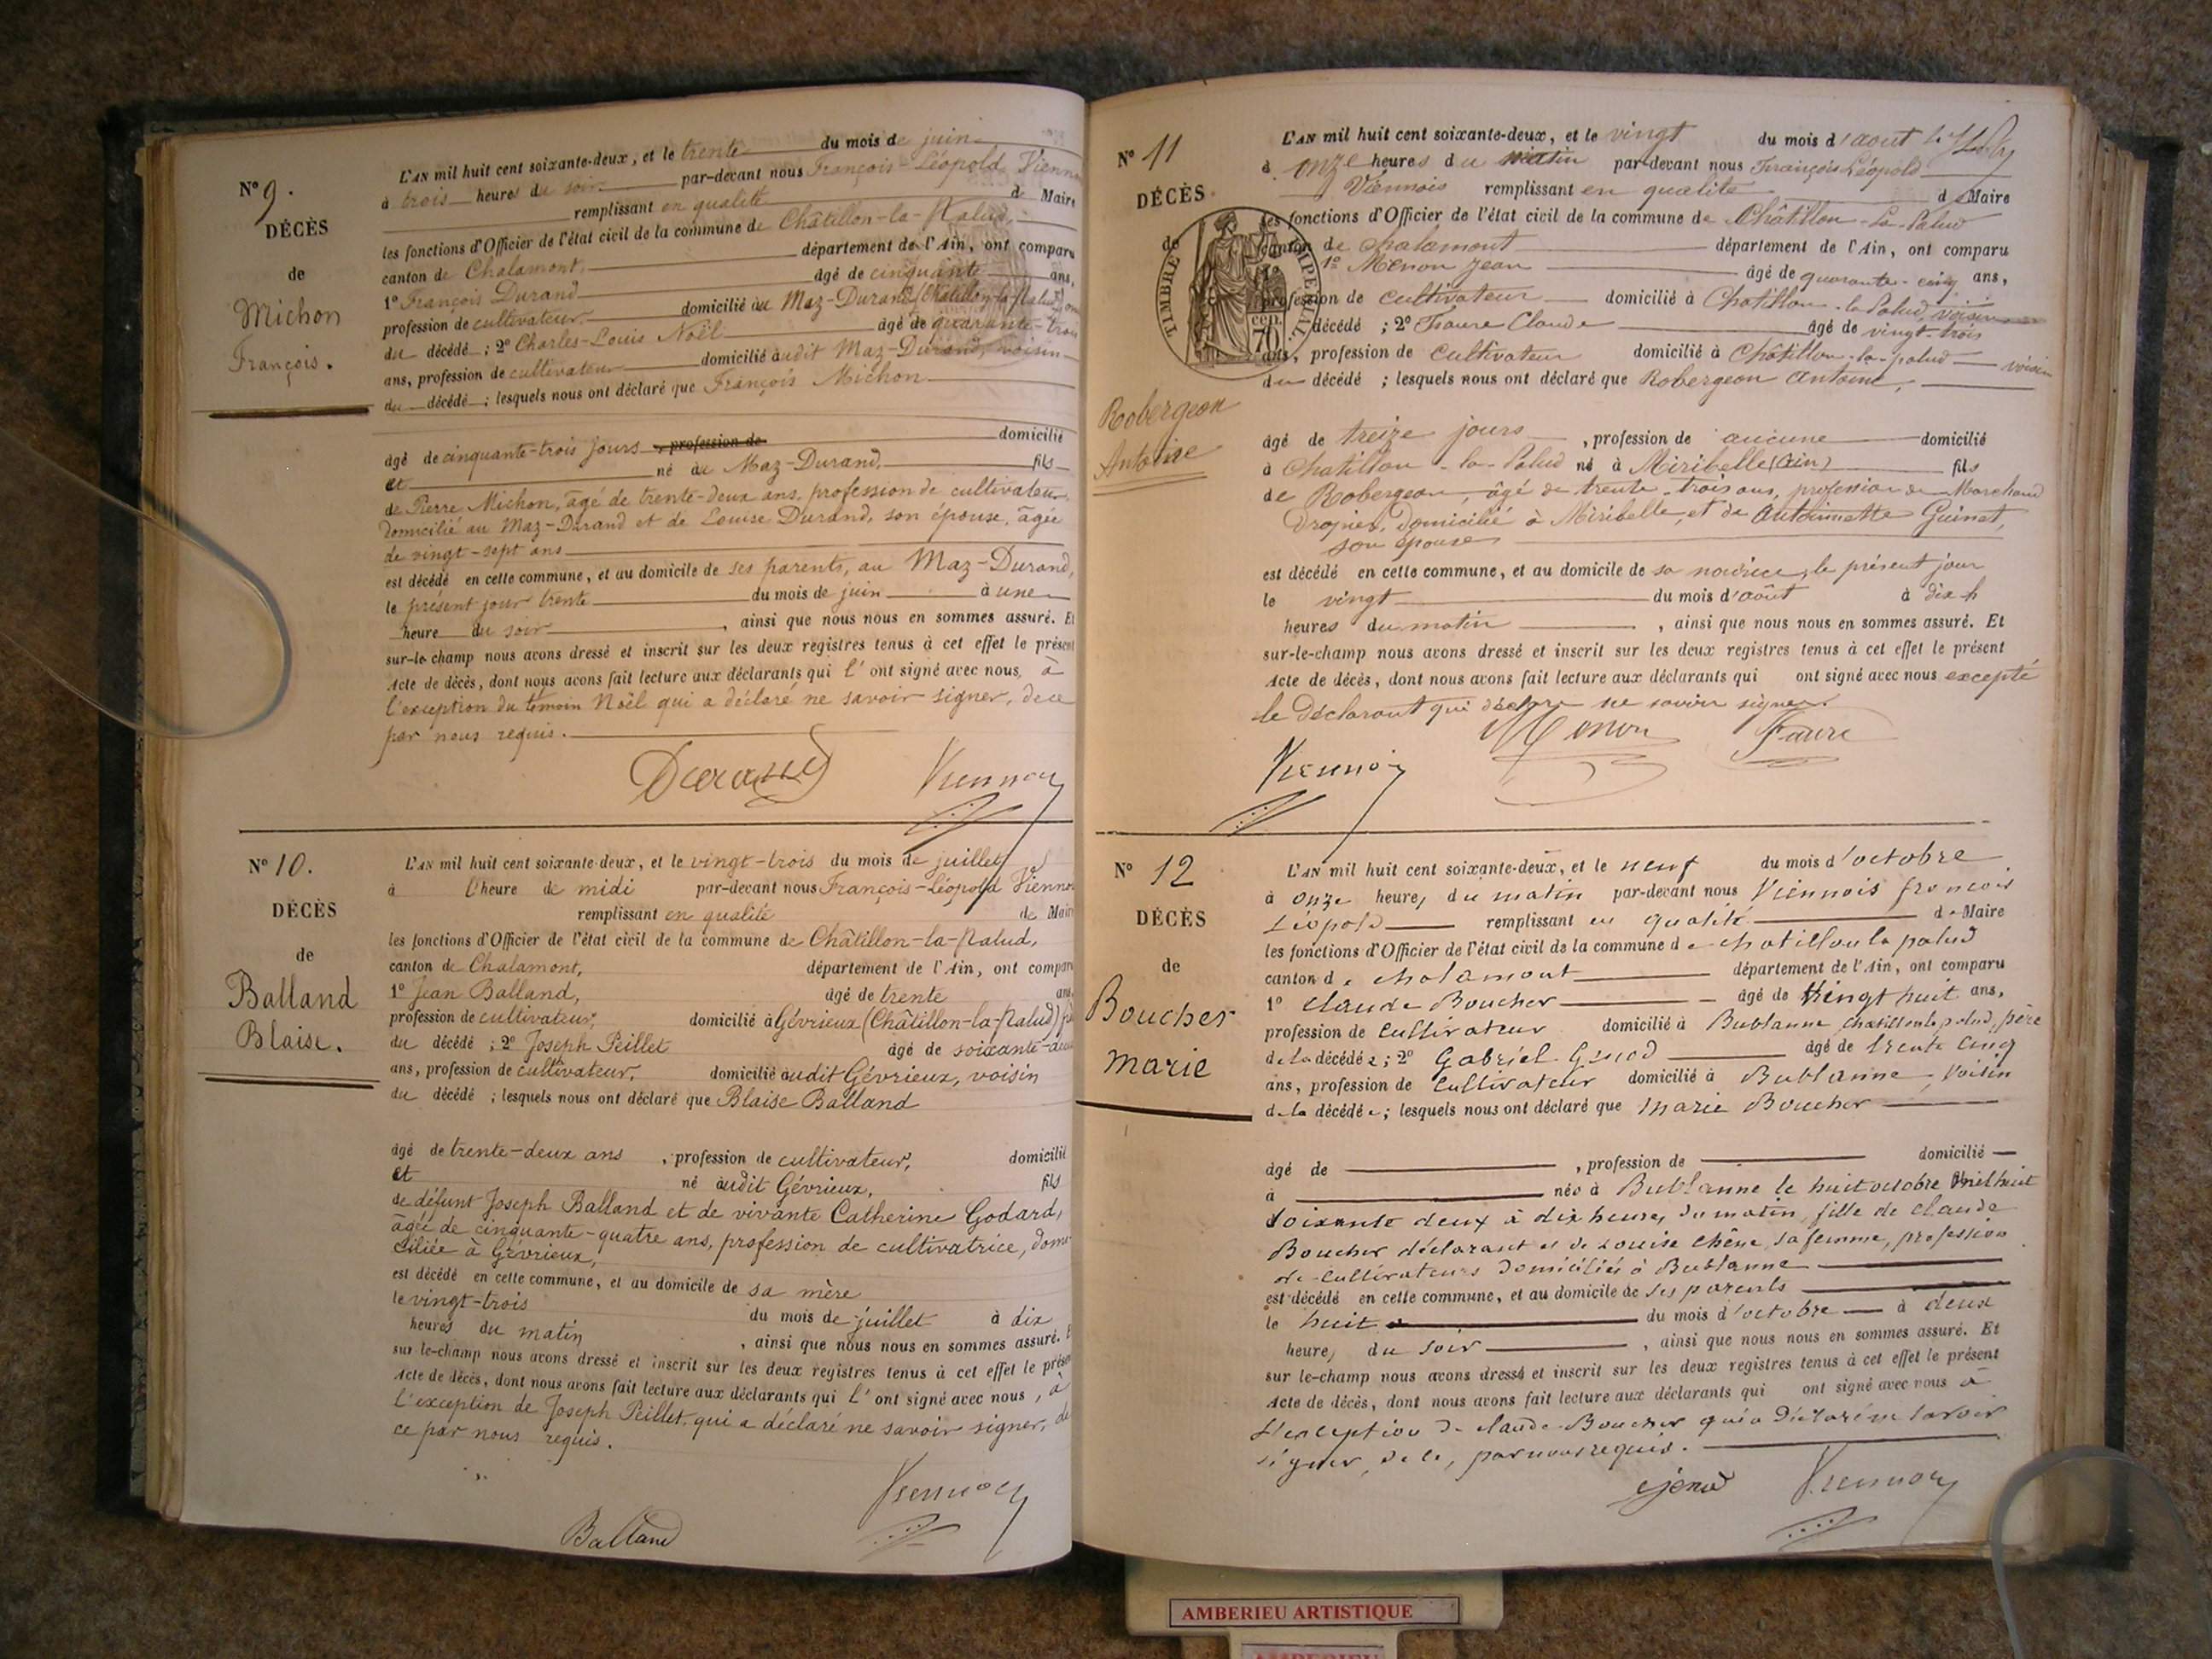 N° 9.
DÉCÈS
de
Michon
François.
L'AN mil huit cent soixante-deux, et le trente du mois de juin
à trois heures du soir par-devant nous François-Léopold Vienno
remplissant en qualité de Maire
les fonctions d'Officier de l'état civil de la commune de Châtillon-la-Palud,
canton de Chalamont, département de l'Ain, ont comparu
1° François Durand âgé de cinquante ans,
profession de cultivateur domicilié au Maz-Durand (Châtillon-la-Palud)
du décédé ; 2° Charles-Louis Noël âgé de quarante-trois
ans, profession de cultivateur domicilié audit Maz-Durand, voisin
du décédé ; lesquels nous ont déclaré que François Michon
âgé de cinquante-trois jours , profession de domicilié
et né au Maz-Durand, fils
de Pierre Michon, âgé de trente-deux ans, profession de cultivateur,
domicilié au Maz-Durand et de Louise Durand, son épouse, âgée
de vingt-sept ans
est décédé en cette commune, et au domicile de ses parents, au Maz-Durand,
le présent jour trente du mois de juin à une
heure du soir , ainsi que nous nous en sommes assuré. Et
sur-le-champ nous avons dressé et inscrit sur les deux registres tenus à cet effet le présent
Acte de décès, dont nous avons fait lecture aux déclarants qui l'ont signé avec nous, à
l'exception du témoin Noël qui a déclaré ne savoir signer, de ce
par nous requis.
Durand Viennois
N° 10.
DÉCÈS
de
Balland
Blaise.
L'AN mil huit cent soixante-deux, et le vingt-trois du mois de juillet
à l'heure de midi par-devant nous François-Léopold Vienno
remplissant en qualité de Mair
les fonctions d'Officier de l'état civil de la commune de Châtillon-la-Palud,
canton de Chalamont, département de l'Ain, ont comparu
1° Jean Balland, âgé de trente ans,
profession de cultivateur, domicilié à Gévrieux (Châtillon-la-Palud)
du décédé ; 2° Joseph Peillet âgé de soixante-deux
ans, profession de cultivateur, domicilié audit Gévrieux, voisin
du décédé ; lesquels nous ont déclaré que Blaise Balland
âgé de trente-deux ans , profession de cultivateur, domicilié
et né audit Gévrieux, fils
de défunt Joseph Balland et de vivante Catherine Godard,
âgée de cinquante-quatre ans, profession de cultivatrice, domi
ciliée à Gévrieux,
est décédé en cette commune, et au domicile de sa mère
le vingt-trois du mois de juillet à dix
heures du matin , ainsi que nous nous en sommes assuré. E
sur le-champ nous avons dressé et inscrit sur les deux registres tenus à cet effet le prése
Acte de décès, dont nous avons fait lecture aux déclarants qui l'ont signé avec nous, à
l'exception de Joseph Peillet, qui a déclaré ne savoir signer, de
ce par nous requis.
Viennois
Balland
N° 11
DÉCÈS
de
Robergeon
Antoine
TIMBRE IMPERIAL.
cen.
70
L'AN mil huit cent soixante-deux, et le vingt du mois d'aout
à onze heures du matin par-devant nous François Léopold
Viennois remplissant en qualité de Maire
les fonctions d'Officier de l'état civil de la commune de Châtillon-La-Palud
canton de chalamont département de l'Ain, ont comparu
1° Menon Jean âgé de quarante-cinq ans,
profession de cultivateur domicilié à Chatillon-la-Palud, voisin
décédé ; 2° Faure Claude âgé de vingt-trois
ans, profession de cultivateur domicilié à Châtillon-la-palud voisin
du décédé ; lesquels nous ont déclaré que Robergeon Antoine,
âgé de treize jours , profession de aucune domicilié
à Chatillon-la-Palud né à Miribelle (Ain) fils
de Robergeon, âgé de trente-trois ans, profession de Marchand
Drapier, domicilié à Miribelle, et de Antoinette Guinet,
son épouse
est décédé en cette commune, et au domicile de sa nourice, le présent jour
le vingt du mois d'août à dix h
heures du matin , ainsi que nous nous en sommes assuré. Et
sur-le-champ nous avons dressé et inscrit sur les deux registres tenus à cet effet le présent
Acte de décès, dont nous avons fait lecture aux déclarants qui ont signé avec nous excepté
le déclarant qui déclare ne savoir signer.
Menon Faure
Viennois
N° 12
DÉCÈS
de
Boucher
marie
L'AN mil huit cent soixante-deux, et le neuf du mois d'octobre
à onze heures du matin par-devant nous Viennois françois
Léopold remplissant en qualité de Maire
les fonctions d'Officier de l'état civil de la commune de chatillon la palud
canton de chalamont département de l'Ain, ont comparu
1° claude Boucher âgé de vingt huit ans,
profession de cultivateur domicilié à Bublanne, chatillon la palud, père
de la décédée ; 2° Gabriel Genod âgé de trente cinq
ans, profession de cultivateur domicilié à Bublanne, voisin
de la décédée ; lesquels nous ont déclaré que marie Boucher
âgé de , profession de domicilié
à née à Bublanne le huit octobre mil huit
soixante deux à dix heures du matin, fille de claude
Boucher déclarant et de Louise chêne, sa femme, profession
de cultivateurs domiciliés à Bublanne
est décédé en cette commune, et au domicile de ses parents
le huit du mois d'octobre à deux
heures du soir , ainsi que nous nous en sommes assuré. Et
sur-le-champ nous avons dressé et inscrit sur les deux registres tenus à cet effet le présent
Acte de décès, dont nous avons fait lecture aux déclarants qui ont signé avec nous à
l'exception de claude Boucher qui a déclaré ne savoir
signer, de ce, par nous requis.
Viennois
AMBERIEU ARTISTIQUE
AMBERIEU